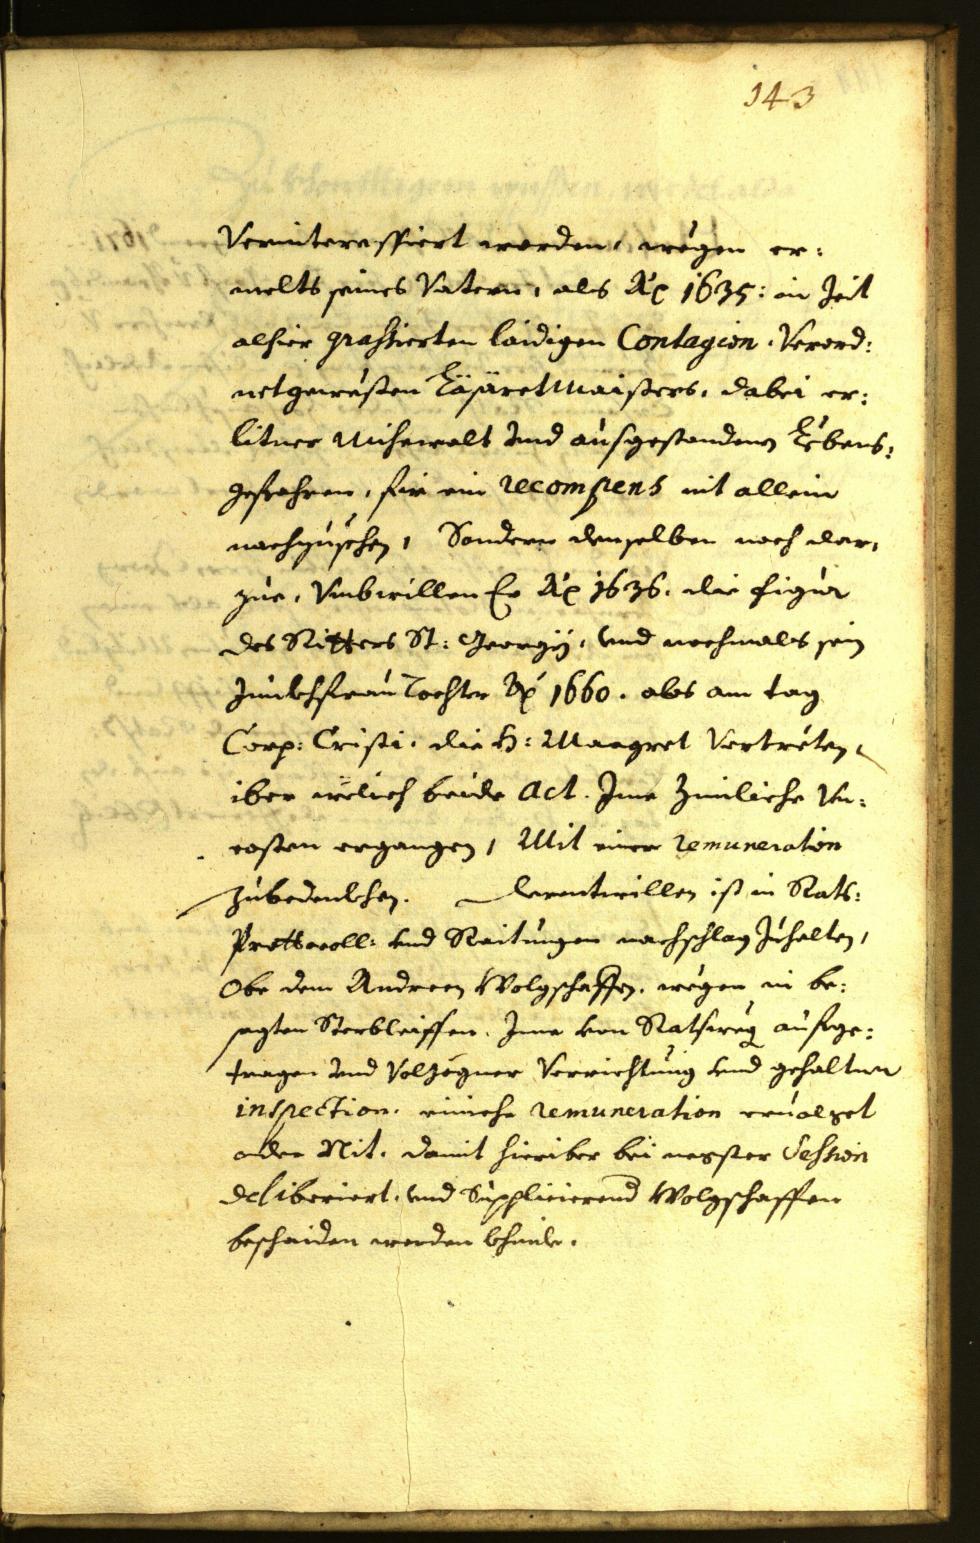 143
Verinteressiert worden, wegen er:
melts seines Vatern, als Aõ 1635: in Zeit
alhier grassierten laidigen Contagion. Verord:
netgewesten Läsäretmaisters, dabei er:
litner Mihewalt und ausgestandnen Lebens:
gefrahren, fir ein recompens nit allein
nachzusehen, Sondern denselben noch dar:
zue, Umbwillen Er Aõ 1636. die figur
des Ritters St: Georgÿ, und nochmals sein
Junckhfrau Tochter Aõ 1660. abs am tag
Corp: Cristi. die H: Margret Vertreten,
iber welich beide Act. Ime Zimliche Un:
costen ergangen, Mit einer remuneration
zubedenckhen. Derentwillen ist in Rats:
Prottocoll: und Raitungen nachschlag Zuhalten,
Obe dem Andreen Wolgschaffen. wegen in be:
sagten Sterbleiffen. Ime von Ratsweg aufge:
tragen und Volzogner Verrichtung und gehaltner
inspection. ainiche remuneration ervolget
oder Nit. damit hieriber bei negster Session
deliberiert. und Supplicierend Wolgschaffen
beschaiden werden khinde.